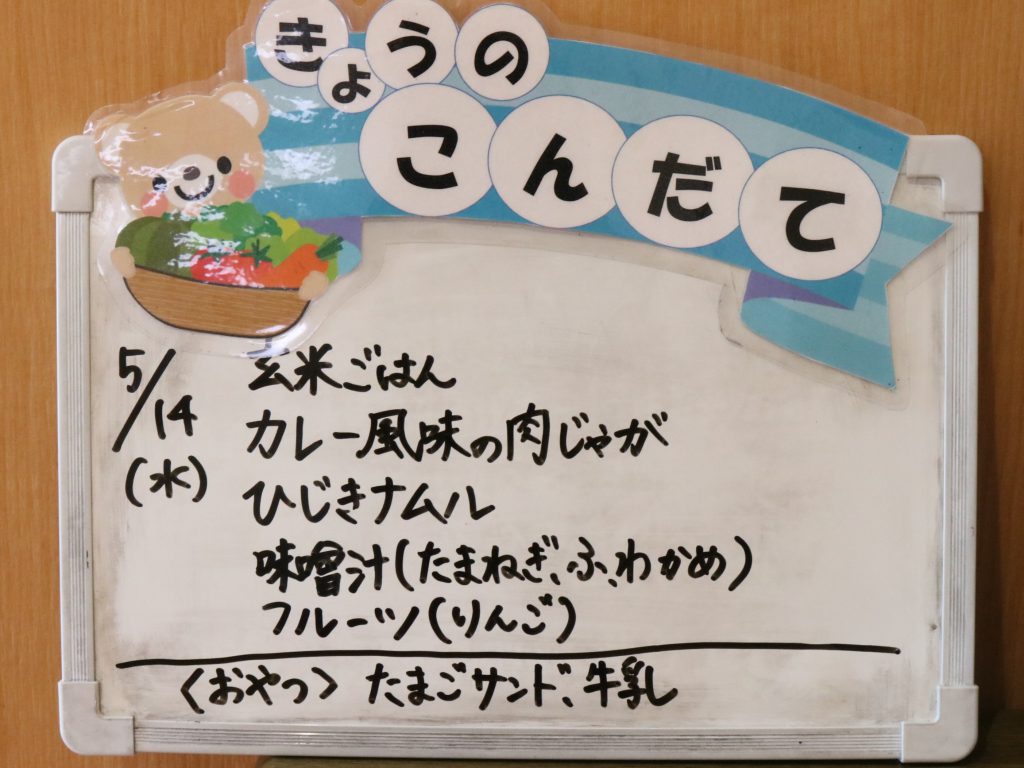 きょうの
こんだて
5/14
(水)
玄米ごはん
カレー風味の肉じゃが
ひじきナムル
味噌汁(たまねぎ、ふ、わかめ)
フルーツ(りんご)
〈おやつ〉たまごサンド、牛乳